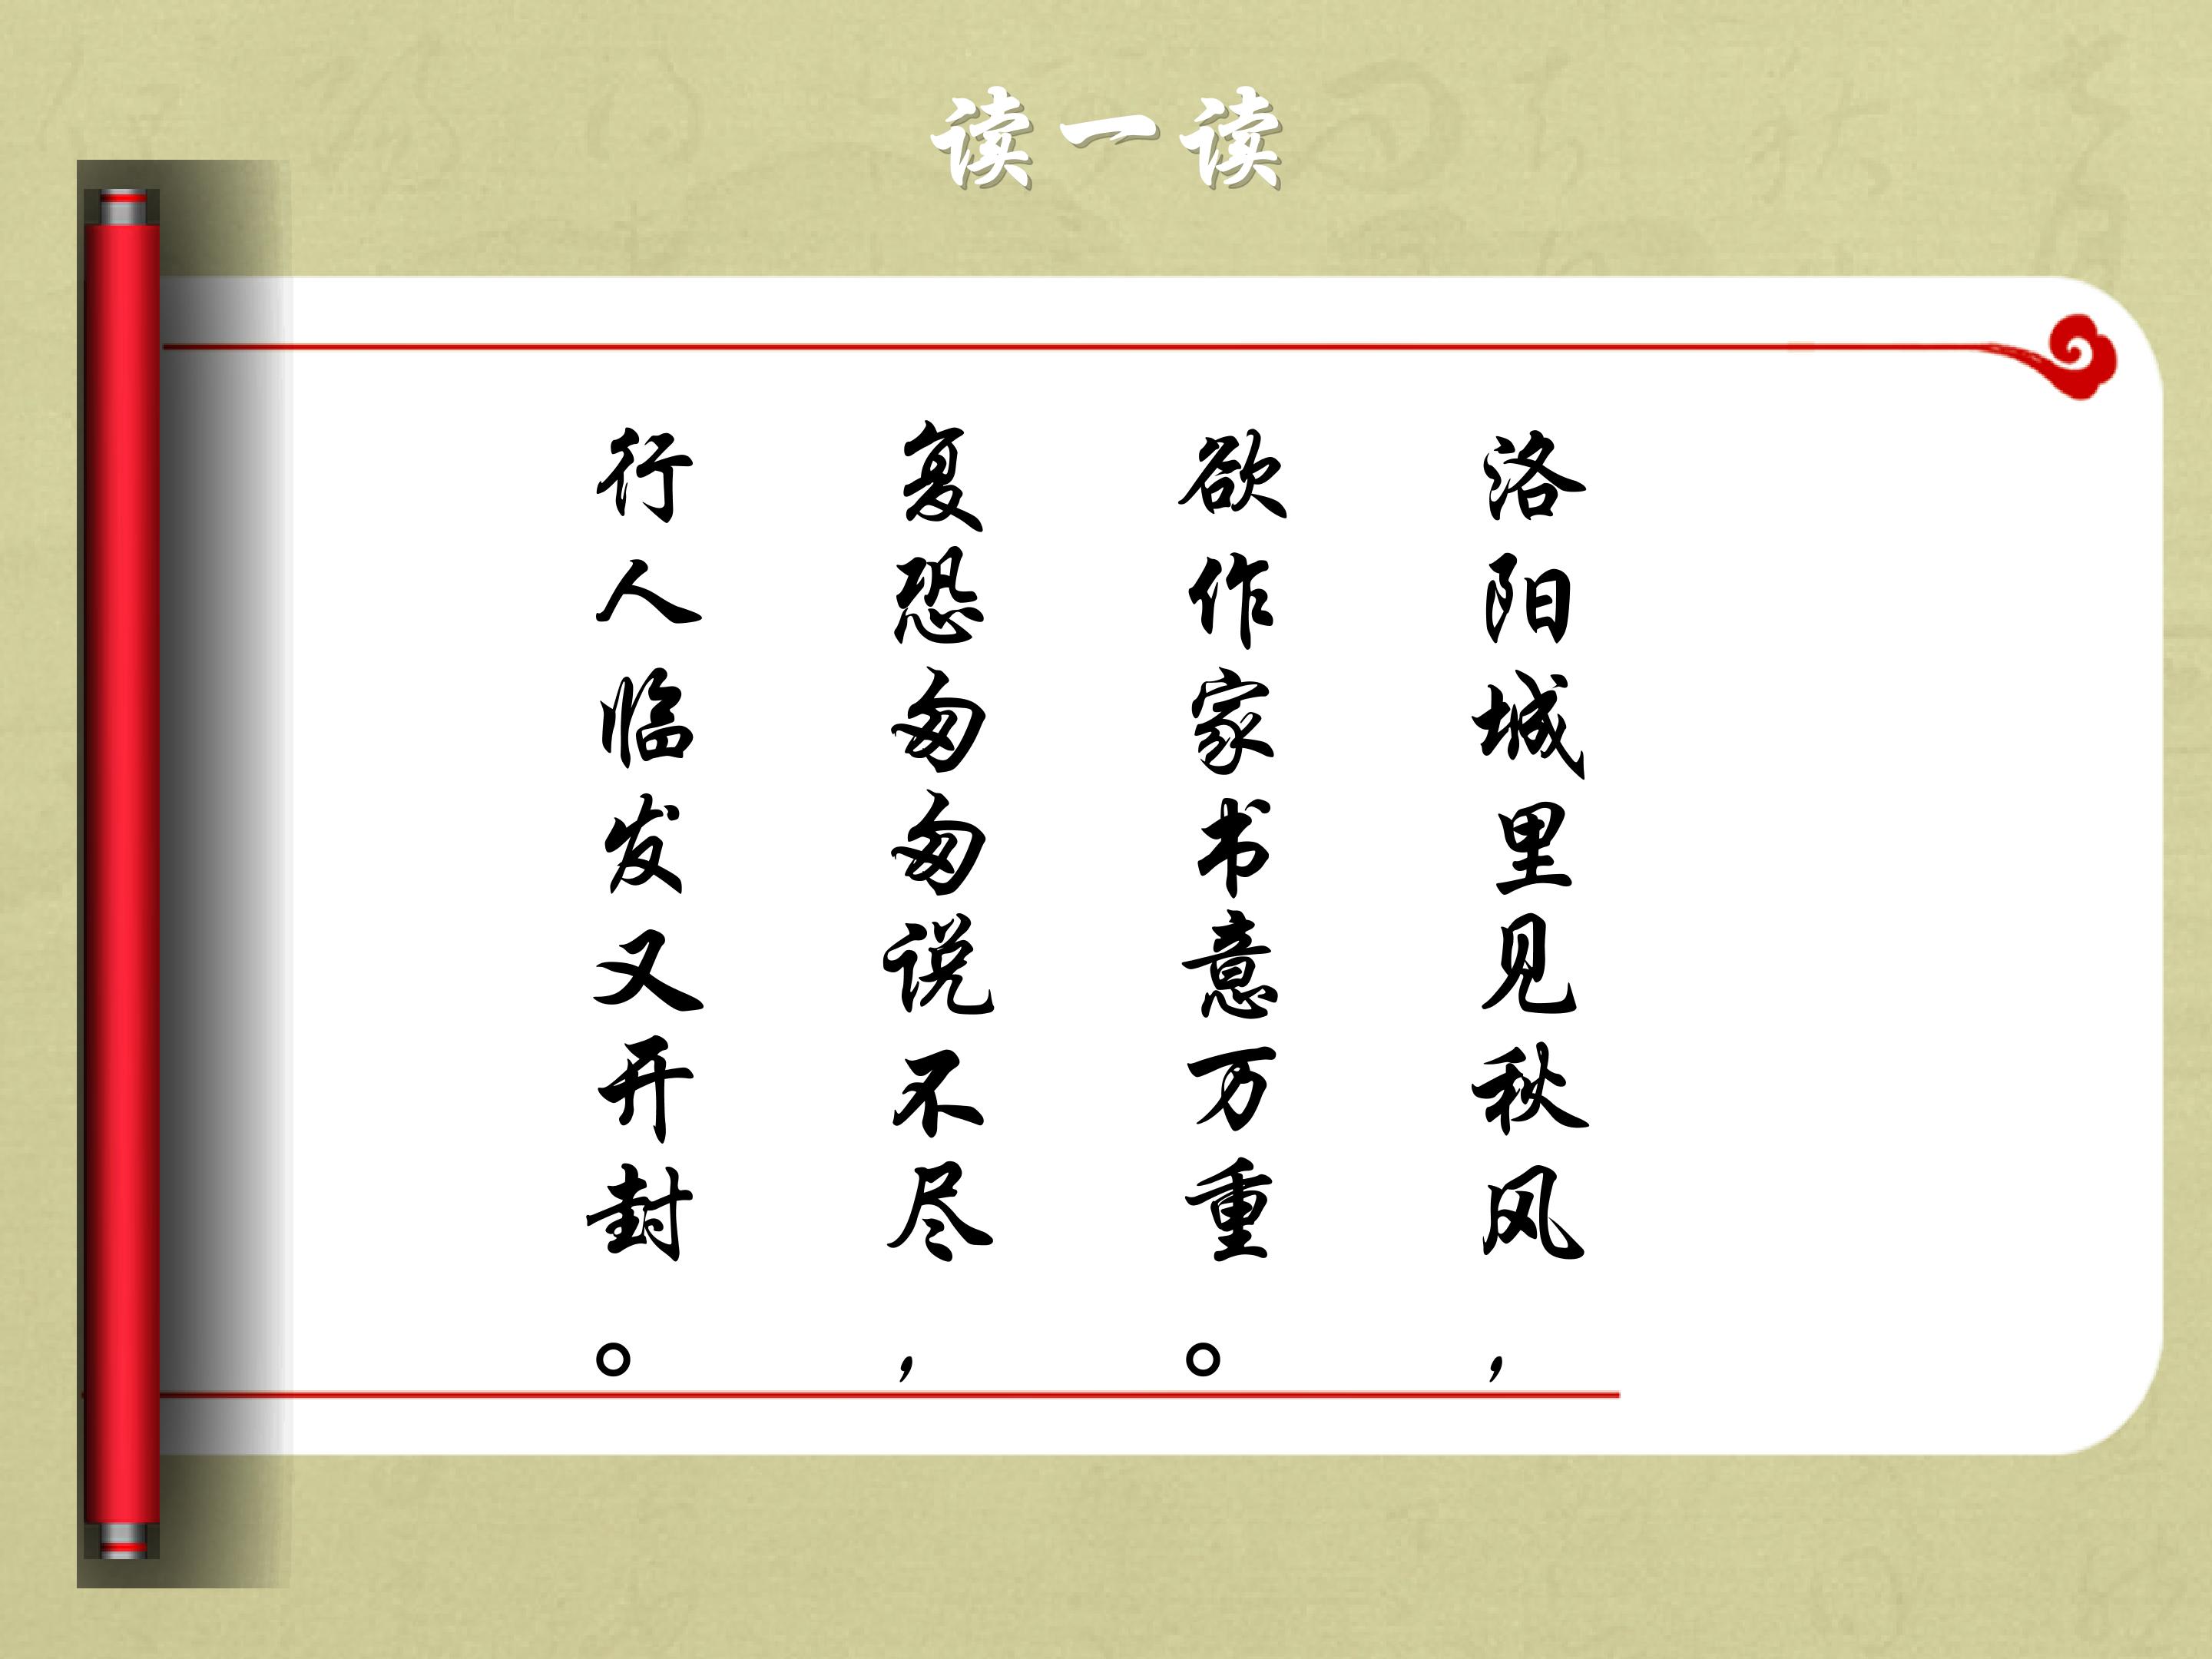 读一读
洛阳城里见秋风，
欲作家书意万重。
复恐匆匆说不尽，
行人临发又开封。